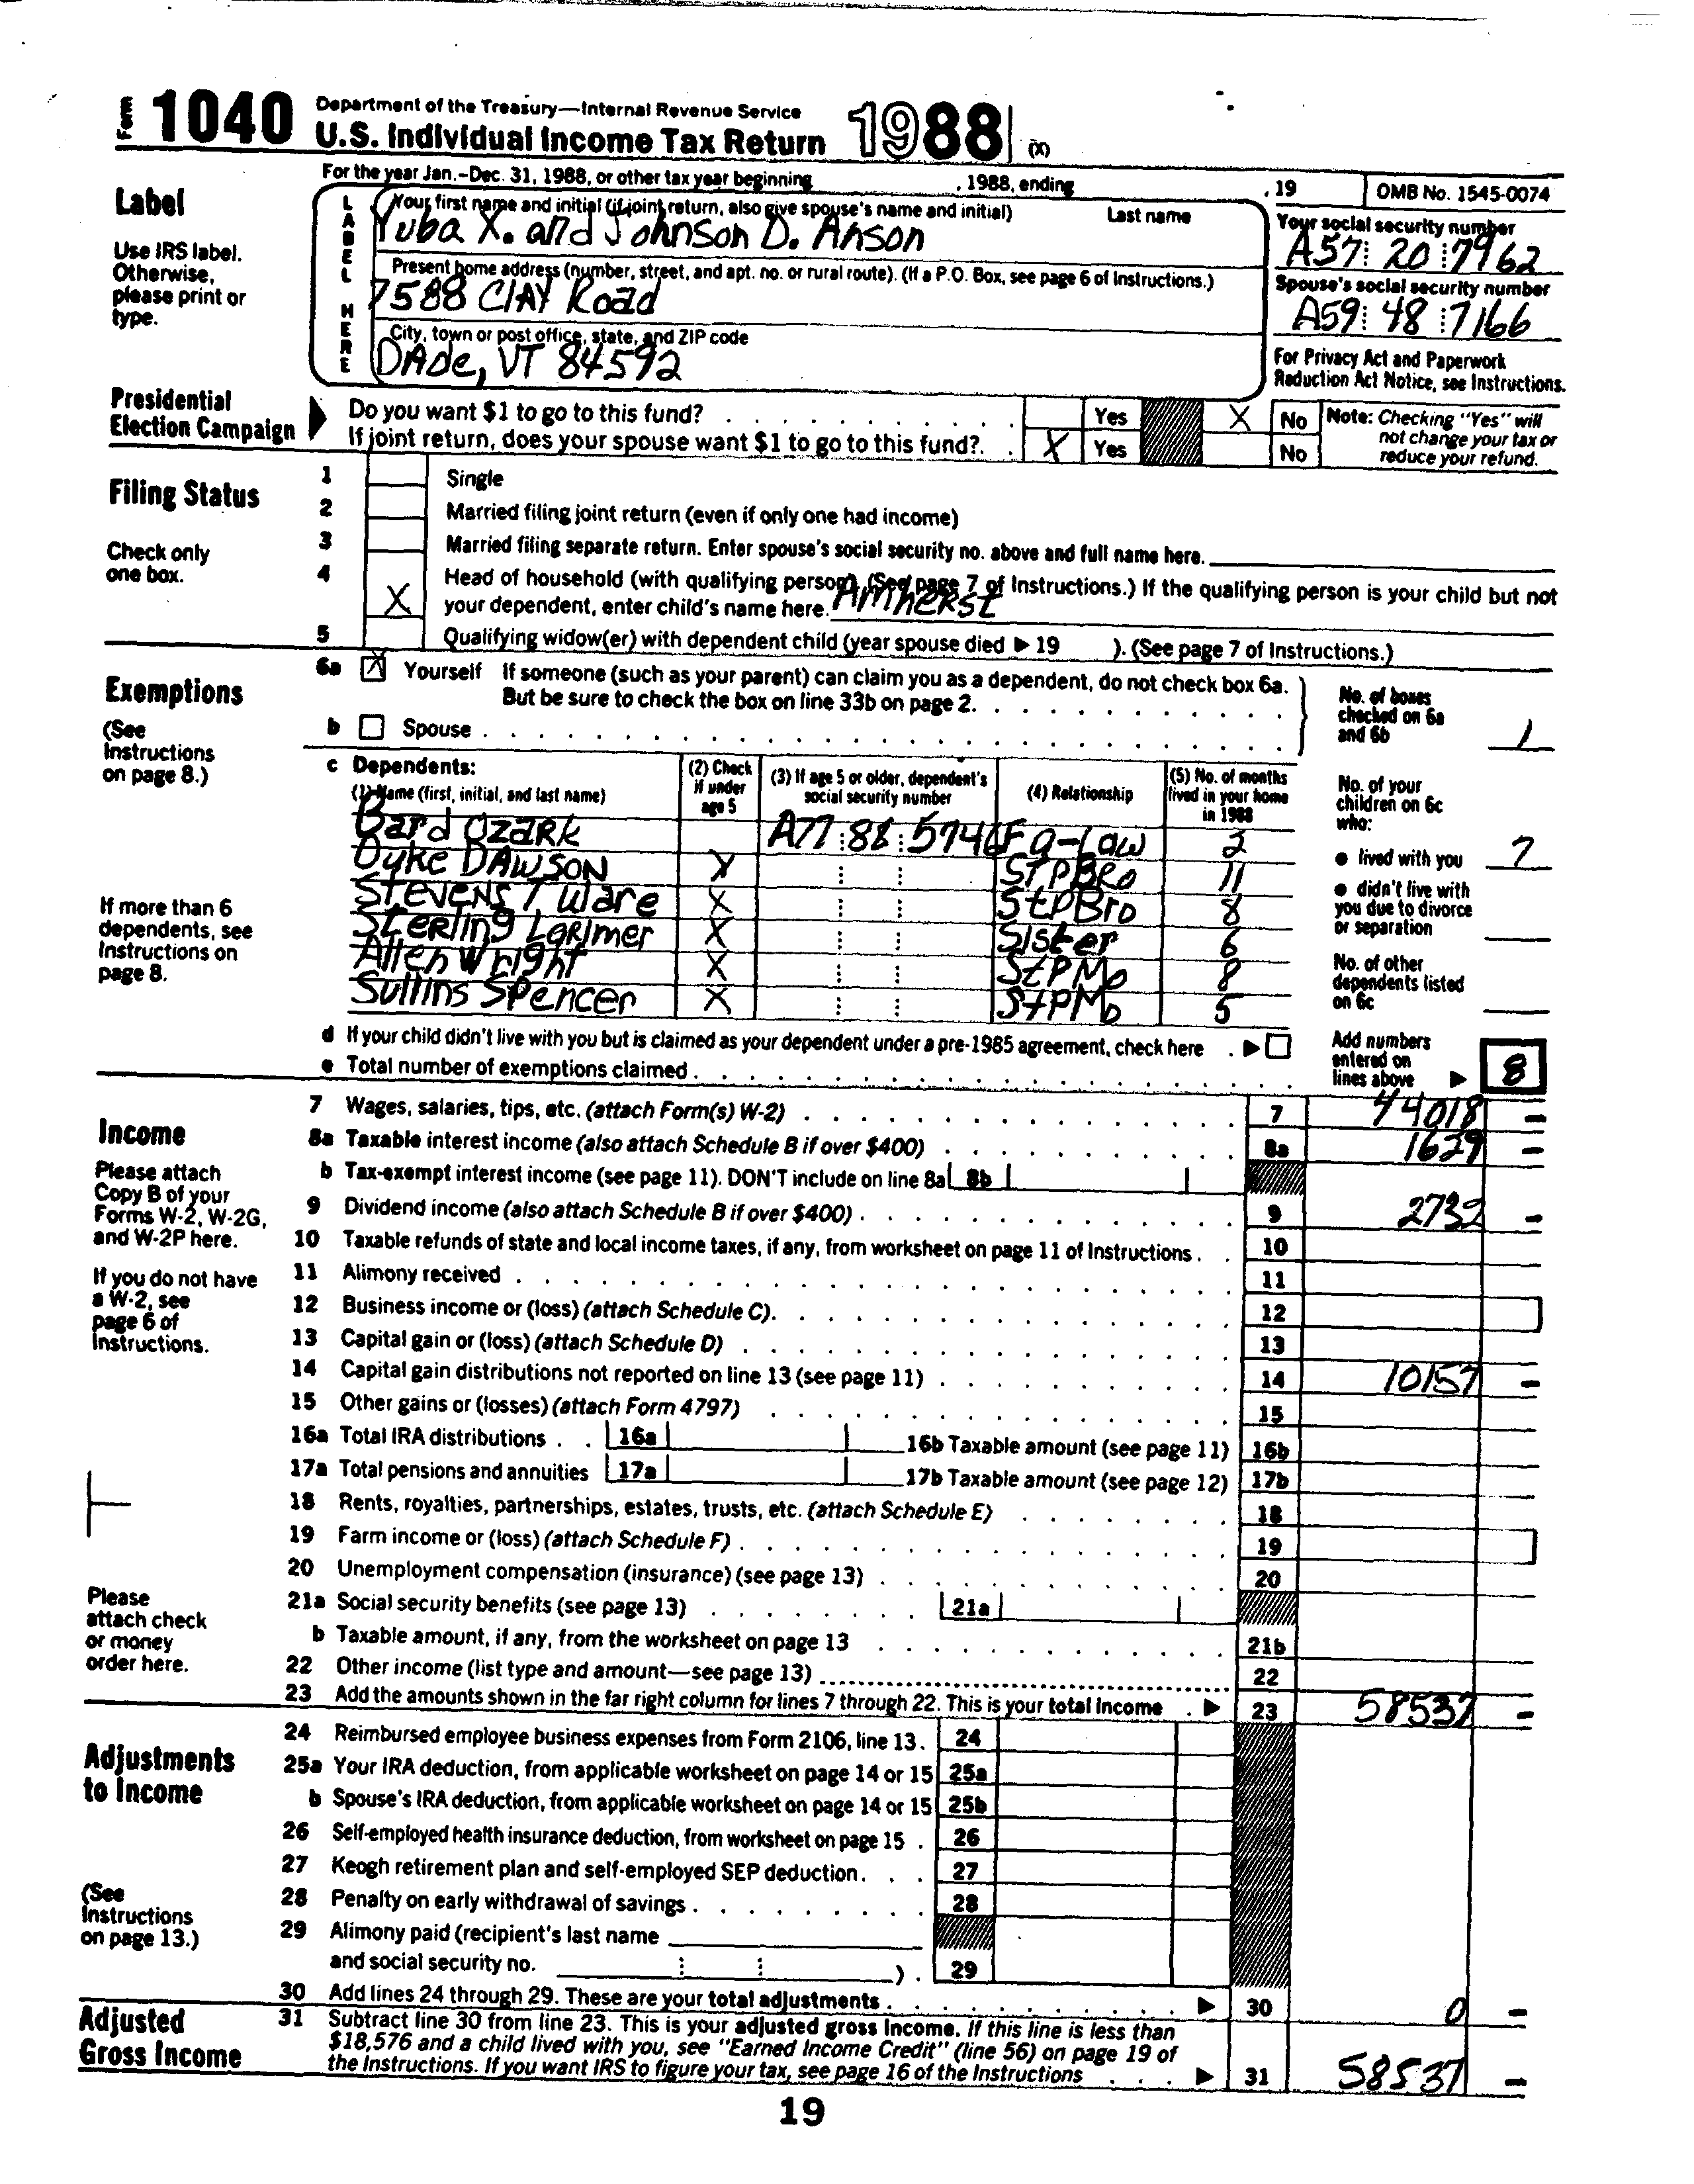 Form 1040 Department of the Treasury—Internal Revenue Service
U.S. Individual Income Tax Return 1988 (X)
For the year Jan.-Dec. 31, 1988, or other tax year beginning , 1988, ending , 19 OMB No. 1545-0074
Label
Use IRS label. Otherwise, please print or type.
LABEL HERE
Your first name and initial (if joint return, also give spouse's name and initial) Last name
Yuba X. and Johnson D. Anson
Your social security number
A57 20 7962
Present home address (number, street, and apt. no. or rural route). (If a P.O. Box, see page 6 of Instructions.)
7588 Clay Road
Spouse's social security number
A59 48 7166
City, town or post office, state, and ZIP code
DAde, VT 84592
For Privacy Act and Paperwork Reduction Act Notice, see Instructions.
Presidential Election Campaign
Do you want $1 to go to this fund? Yes X No
If joint return, does your spouse want $1 to go to this fund?. X Yes No
Note: Checking "Yes" will not change your tax or reduce your refund.
Filing Status
Check only one box.
1 Single
2 Married filing joint return (even if only one had income)
3 Married filing separate return. Enter spouse's social security no. above and full name here.
4 X Head of household (with qualifying person). (See page 7 of Instructions.) If the qualifying person is your child but not
your dependent, enter child's name here. Amherst
5 Qualifying widow(er) with dependent child (year spouse died ▶ 19 ). (See page 7 of Instructions.)
Exemptions
(See Instructions on page 8.)
6a X Yourself If someone (such as your parent) can claim you as a dependent, do not check box 6a.
But be sure to check the box on line 33b on page 2.
b Spouse
No. of boxes checked on 6a and 6b 1
c Dependents:
(1) Name (first, initial, and last name) (2) Check if under age 5 (3) If age 5 or older, dependent's social security number (4) Relationship (5) No. of months lived in your home in 1988
Bard Ozark A77 88 5746 Fa-Law 2
Dyke DAWSON X STPBRo 11
Stevens Tulare X StPBro 8
Sterling Lorimer X Sister 6
Allen Wright X StPMo 8
Sullins Spencer X StPMo 5
If more than 6 dependents, see Instructions on page 8.
No. of your children on 6c who:
● lived with you 7
● didn't live with you due to divorce or separation
No. of other dependents listed on 6c
d If your child didn't live with you but is claimed as your dependent under a pre-1985 agreement, check here ▶
e Total number of exemptions claimed
Add numbers entered on lines above ▶ 8
Income
Please attach Copy B of your Forms W-2, W-2G, and W-2P here.
If you do not have a W-2, see page 6 of Instructions.
Please attach check or money order here.
7 Wages, salaries, tips, etc. (attach Form(s) W-2) 7 44018 –
8a Taxable interest income (also attach Schedule B if over $400) 8a 1629 –
b Tax-exempt interest income (see page 11). DON'T include on line 8a 8b
9 Dividend income (also attach Schedule B if over $400) 9 2732 –
10 Taxable refunds of state and local income taxes, if any, from worksheet on page 11 of Instructions 10
11 Alimony received 11
12 Business income or (loss) (attach Schedule C). 12
13 Capital gain or (loss) (attach Schedule D) 13
14 Capital gain distributions not reported on line 13 (see page 11) 14 10157 –
15 Other gains or (losses) (attach Form 4797) 15
16a Total IRA distributions 16a 16b Taxable amount (see page 11) 16b
17a Total pensions and annuities 17a 17b Taxable amount (see page 12) 17b
18 Rents, royalties, partnerships, estates, trusts, etc. (attach Schedule E) 18
19 Farm income or (loss) (attach Schedule F) 19
20 Unemployment compensation (insurance) (see page 13) 20
21a Social security benefits (see page 13) 21a
b Taxable amount, if any, from the worksheet on page 13 21b
22 Other income (list type and amount—see page 13) 22
23 Add the amounts shown in the far right column for lines 7 through 22. This is your total income ▶ 23 58537 –
Adjustments to Income
(See Instructions on page 13.)
24 Reimbursed employee business expenses from Form 2106, line 13. 24
25a Your IRA deduction, from applicable worksheet on page 14 or 15 25a
b Spouse's IRA deduction, from applicable worksheet on page 14 or 15 25b
26 Self-employed health insurance deduction, from worksheet on page 15 26
27 Keogh retirement plan and self-employed SEP deduction 27
28 Penalty on early withdrawal of savings 28
29 Alimony paid (recipient's last name
and social security no. ). 29
30 Add lines 24 through 29. These are your total adjustments ▶ 30 0 –
Adjusted Gross Income
31 Subtract line 30 from line 23. This is your adjusted gross income. If this line is less than
$18,576 and a child lived with you, see "Earned Income Credit" (line 56) on page 19 of
the Instructions. If you want IRS to figure your tax, see page 16 of the Instructions ▶ 31 58537 –
19